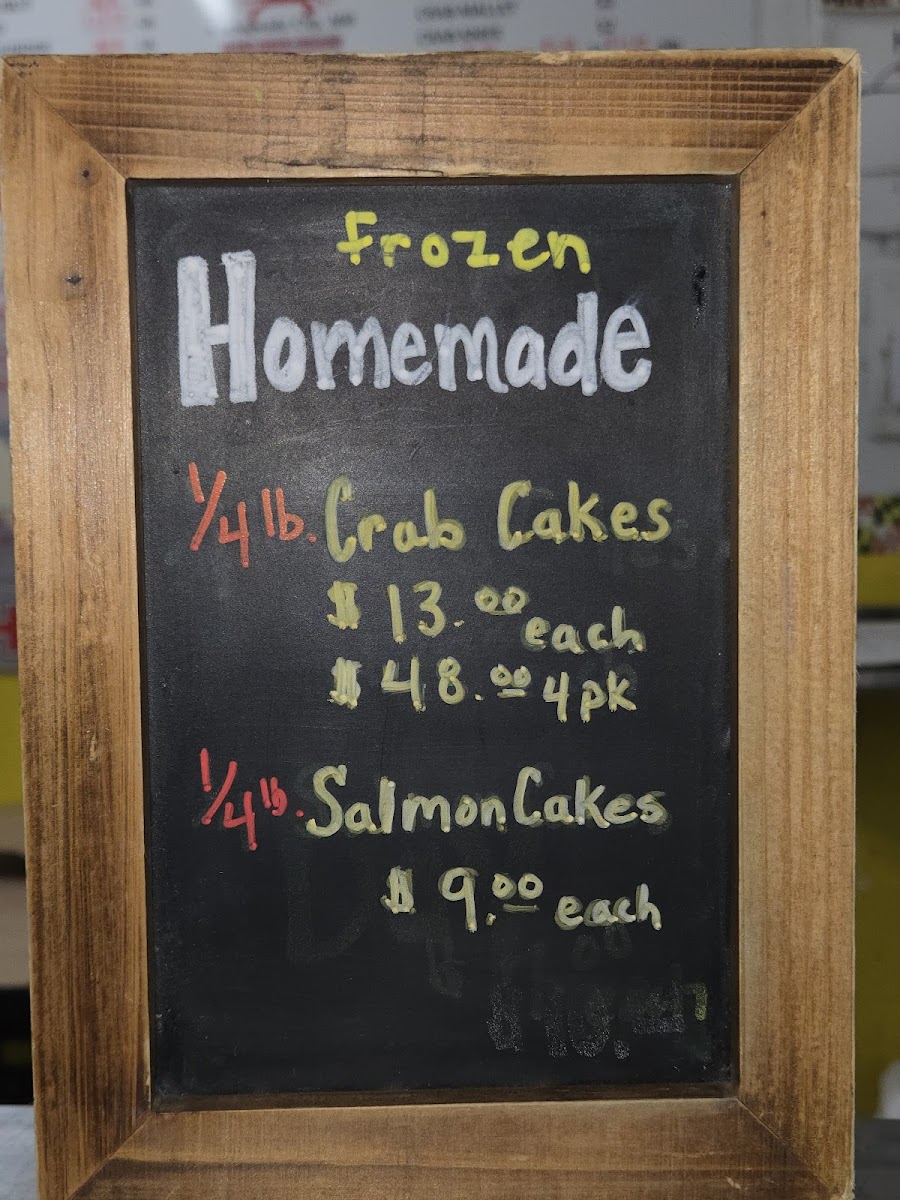 CRAB MALLET
Frozen
Homemade
1/4 lb. Crab Cakes
$ 13.00 each
$ 48.00 4pk
1/4 lb. Salmon Cakes
$ 9.00 each